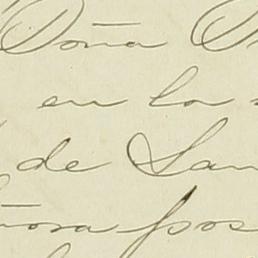 Doña
en la
de San
ñora pos